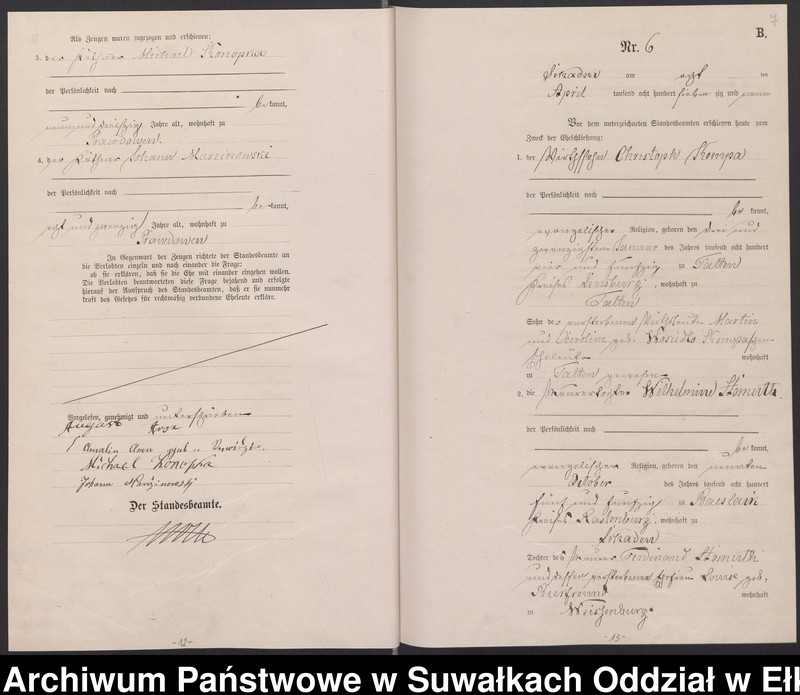 Als Zeugen waren zugezogen und erschienen:
3. der Käthner Michael Konopka
der Persönlichkeit nach
bekannt,
neun und dreißig Jahre alt, wohnhaft zu
Prawdowen.
4. der Käthner Johann Marzinowski
der Persönlichkeit nach
bekannt,
acht und zwanzig Jahre alt, wohnhaft zu
Prawdowen
In Gegenwart der Zeugen richtete der Standesbeamte an
die Verlobten einzeln und nach einander die Frage:
ob sie erklären, daß sie die Ehe mit einander eingehen wollen.
Die Verlobten beantworteten diese Frage bejahend und erfolgte
hierauf der Ausspruch des Standesbeamten, daß er sie nunmehr
kraft des Gesetzes für rechtmäßig verbundene Eheleute erkläre.
Vorgelesen, genehmigt und unterschrieben
August
geb.
Michael Konopka
Johann
Der Standesbeamte.
-12-
7
B.
Nr. 6
am acht ten
April tausend acht hundert siebenzig und neun
Vor dem unterzeichneten Standesbeamten erschienen heute zum
Zweck der Eheschließung:
1. der Wirthssohn Christoph Kompa
der Persönlichkeit nach
bekannt,
evangelischer Religion, geboren den drei und
zwanzigsten Januar des Jahres tausend acht hundert
vier und fünfzig zu Talten
Kreises Sensburg, wohnhaft zu
Talten
Sohn der verstorbenen Wirthsleute Martin
und Caroline geb. Kompaschen
Eheleute wohnhaft
zu Talten gewesen
2. die Maurertochter Wilhelmine
der Persönlichkeit nach
bekannt,
evangelischer Religion, geboren den neunten
October des Jahres tausend acht hundert
fünf und fünfzig zu
Kreises Rastenburg, wohnhaft zu
Tochter des Maurer Ferdinand
und dessen verstorbenen Ehefrau Louise geb.
wohnhaft
in Weissenburg.
-13-
Archiwum Państwowe w Suwałkach Oddział w Eł